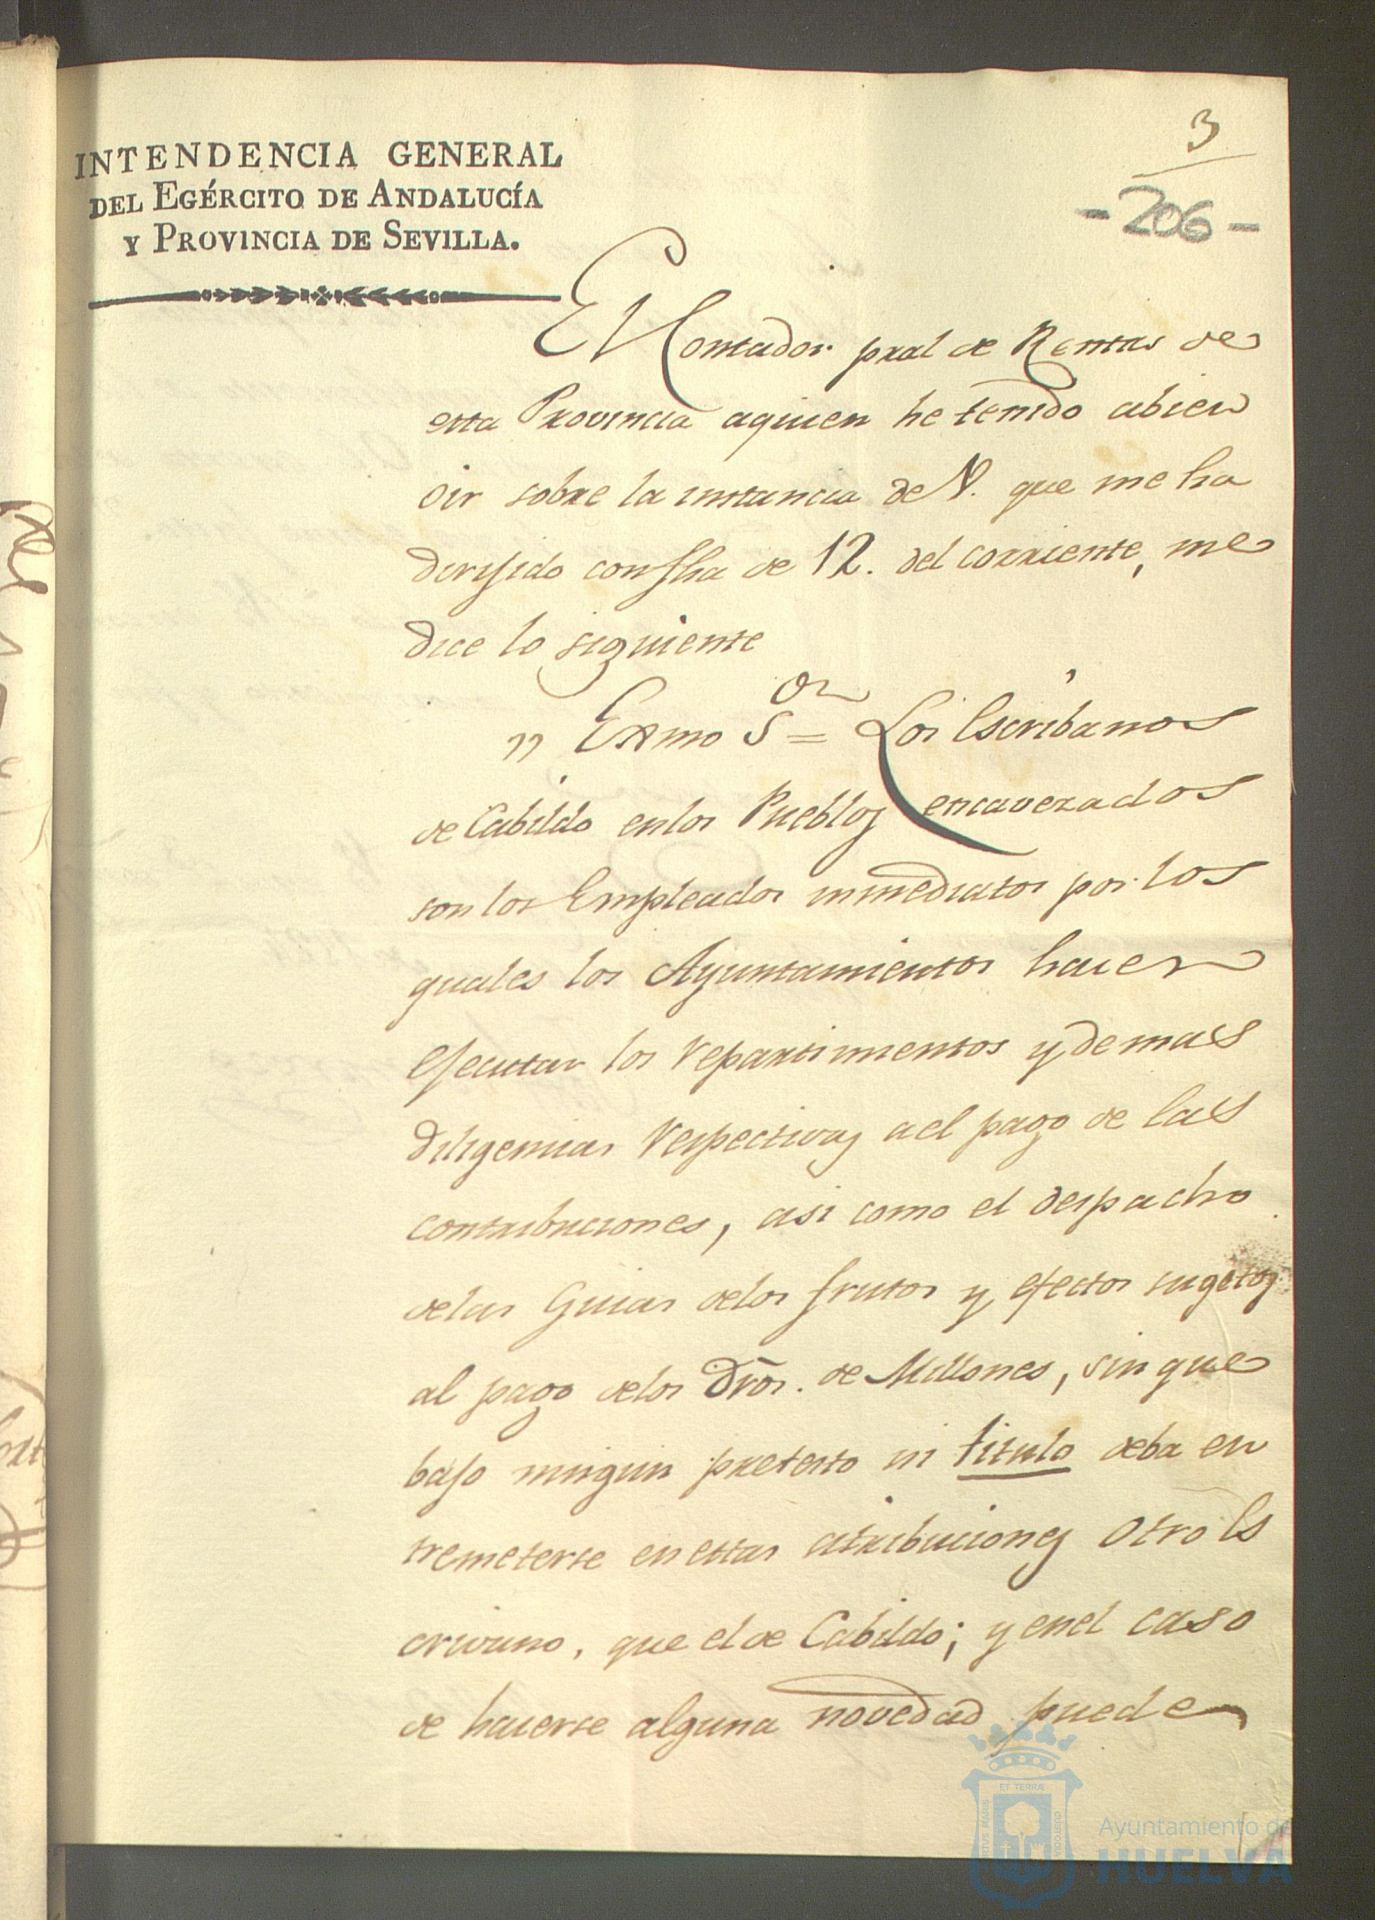 3
-206-
INTENDENCIA GENERAL
DEL EGÉRCITO DE ANDALUCÍA
Y PROVINCIA DE SEVILLA.
El Contador pral de Rentas de
esta Provincia aquien he tenido abien
oir sobre la instancia de V. que me ha
dirijido con fha de 12. del corriente, me
dice lo siguiente
" Exmo Sor = Los Escribanos
de Cabildo enlos Pueblos encavezados
son los Empleados inmediatos por los
quales los Ayuntamientos hacen
ejecutar los repartimientos y demas
diligencias respectivas ael pago de las
contribuciones, asi como el despacho
delas Guias delos frutos y efectos sugetos
al pago delos Dros. de Millones, sin que
bajo ningun pretesto ni titulo deba en
tremeterse enestas atribuciones otro Es
crivano, que el de Cabildo; y enel caso
de hacerse alguna novedad puede
ET TERRÆ
PORTUS MARIS
CUSTODIA
Ayuntamiento de
HUELVA